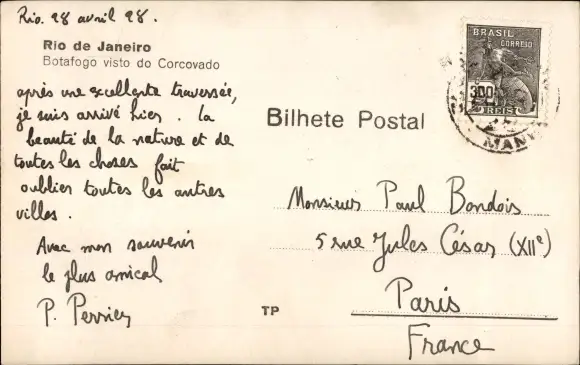 Rio. 28 avril 28.
Rio de Janeiro
Botafogo visto do Corcovado
après une excellente traversée,
je suis arrivé hier. La
beauté de la nature et de
toutes les choses fait
oublier toutes les autres
villes.
Avec mon souvenir
le plus amical
P. Perrier
Bilhete Postal
TP
BRASIL
CORREIO
300
REIS
Monsieur Paul Bondois
5 rue Jules César (XIIe)
Paris
France